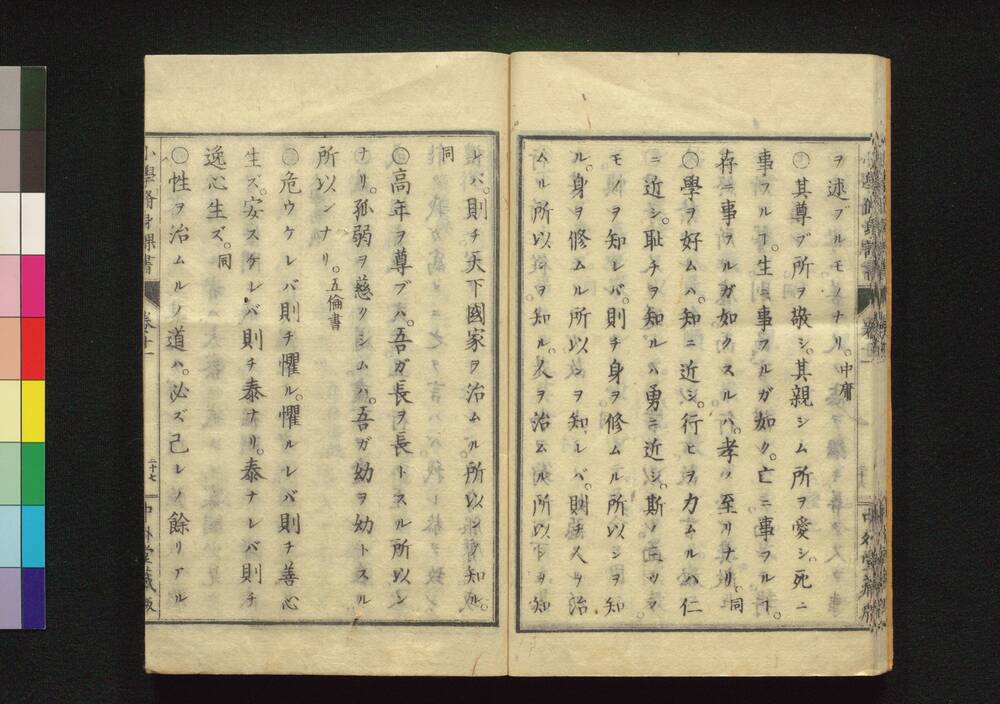 ヲ述ブルモノナリ。中庸
○其尊ブ所ヲ敬シ。其親シム所ヲ愛シ。死ニ
事フルヿ。生ニ事フルガ如ク。亡ニ事フルヿ。
存ニ事フルガ如クスルハ。孝ノ至リナリ。同
○學ヲ好ムハ。知ニ近シ。行ヒヲ力ムルハ仁
ニ近シ。恥チヲ知ルハ勇ニ近シ。斯ノ三ツノ
モノヲ知レバ。則チ身ヲ修ムル所以ンヲ知
ル。身ヲ修ムル所以ンヲ知レバ。則チ人ヲ治
ムル所以ンヲ知ル。人ヲ治ムル所以ンヲ知
レバ。則チ天下國家ヲ治ムル所以ンヲ知ル。
同
○高年ヲ尊ブハ。吾ガ長ヲ長トスル所以ン
ナリ。孤弱ヲ慈クシムハ。吾ガ幼ヲ幼トスル
所以ンナリ。五倫書
○危ウケレバ則チ懼ル。懼ルレバ則チ善心
生ズ。安スケレバ則チ泰ナリ。泰ナレバ則チ
逸心生ズ。同
○性ヲ治ムルノ道ハ。必ズ己レノ餘リアル
小學脩身課書 卷十一 二十七 中外堂藏版